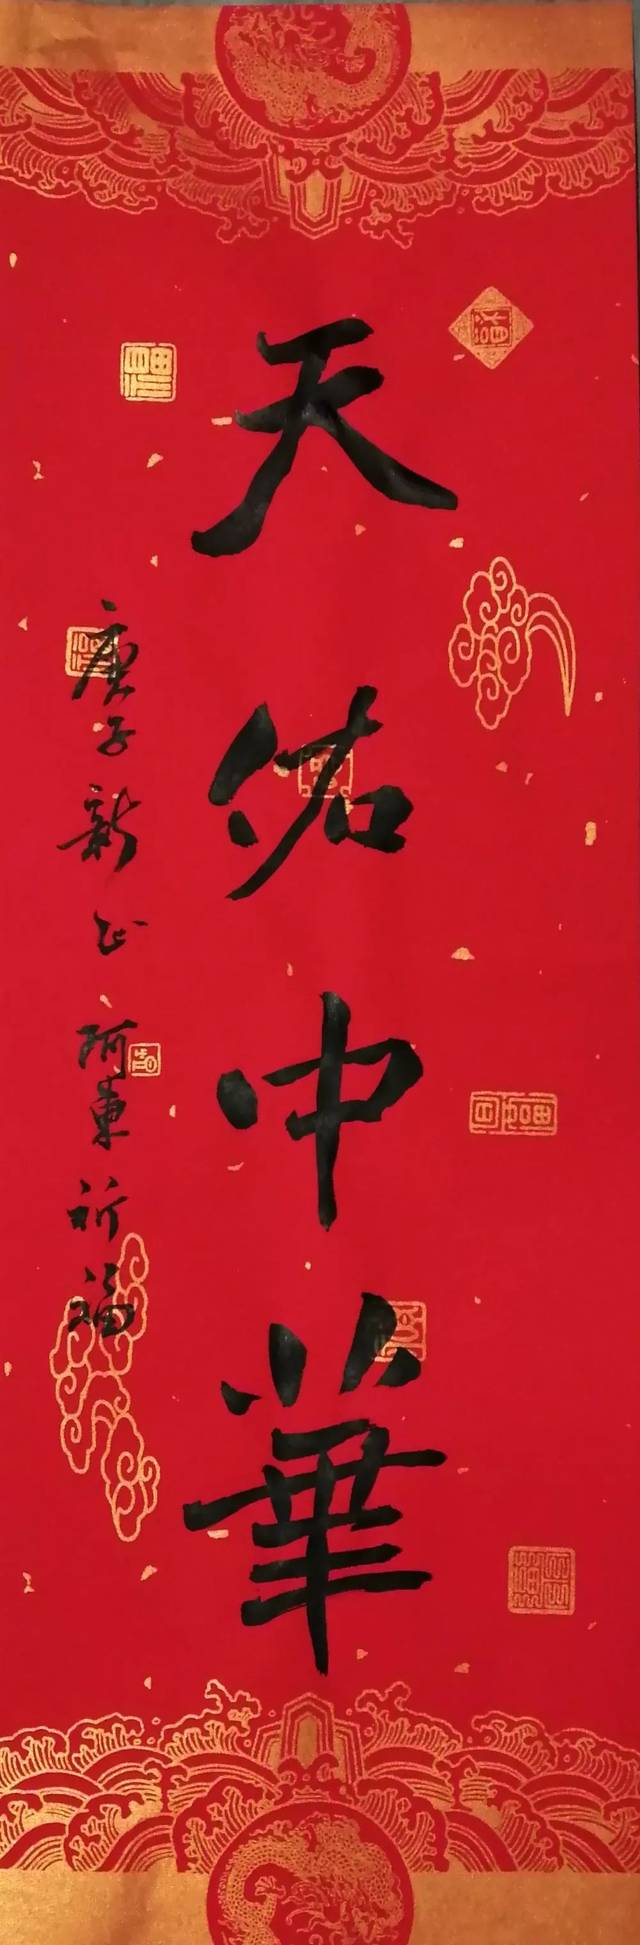 天佑中華
庚子新正 阿東祈福